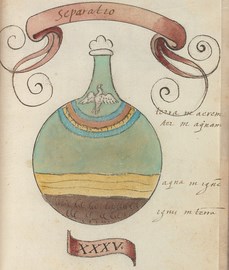 Separatio
terra in aerem
aer in aquam
aqua in igne
igni in terra
XXXV.